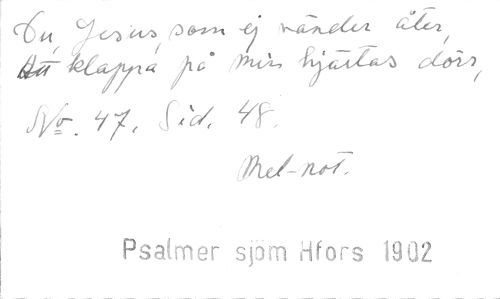 Du, Jesus, som ej vänder åter,
Att klappa på min hjärtas dörr,
No. 47, Sid. 48.
Mel-not.
Psalmer sjöm Hfors 1902